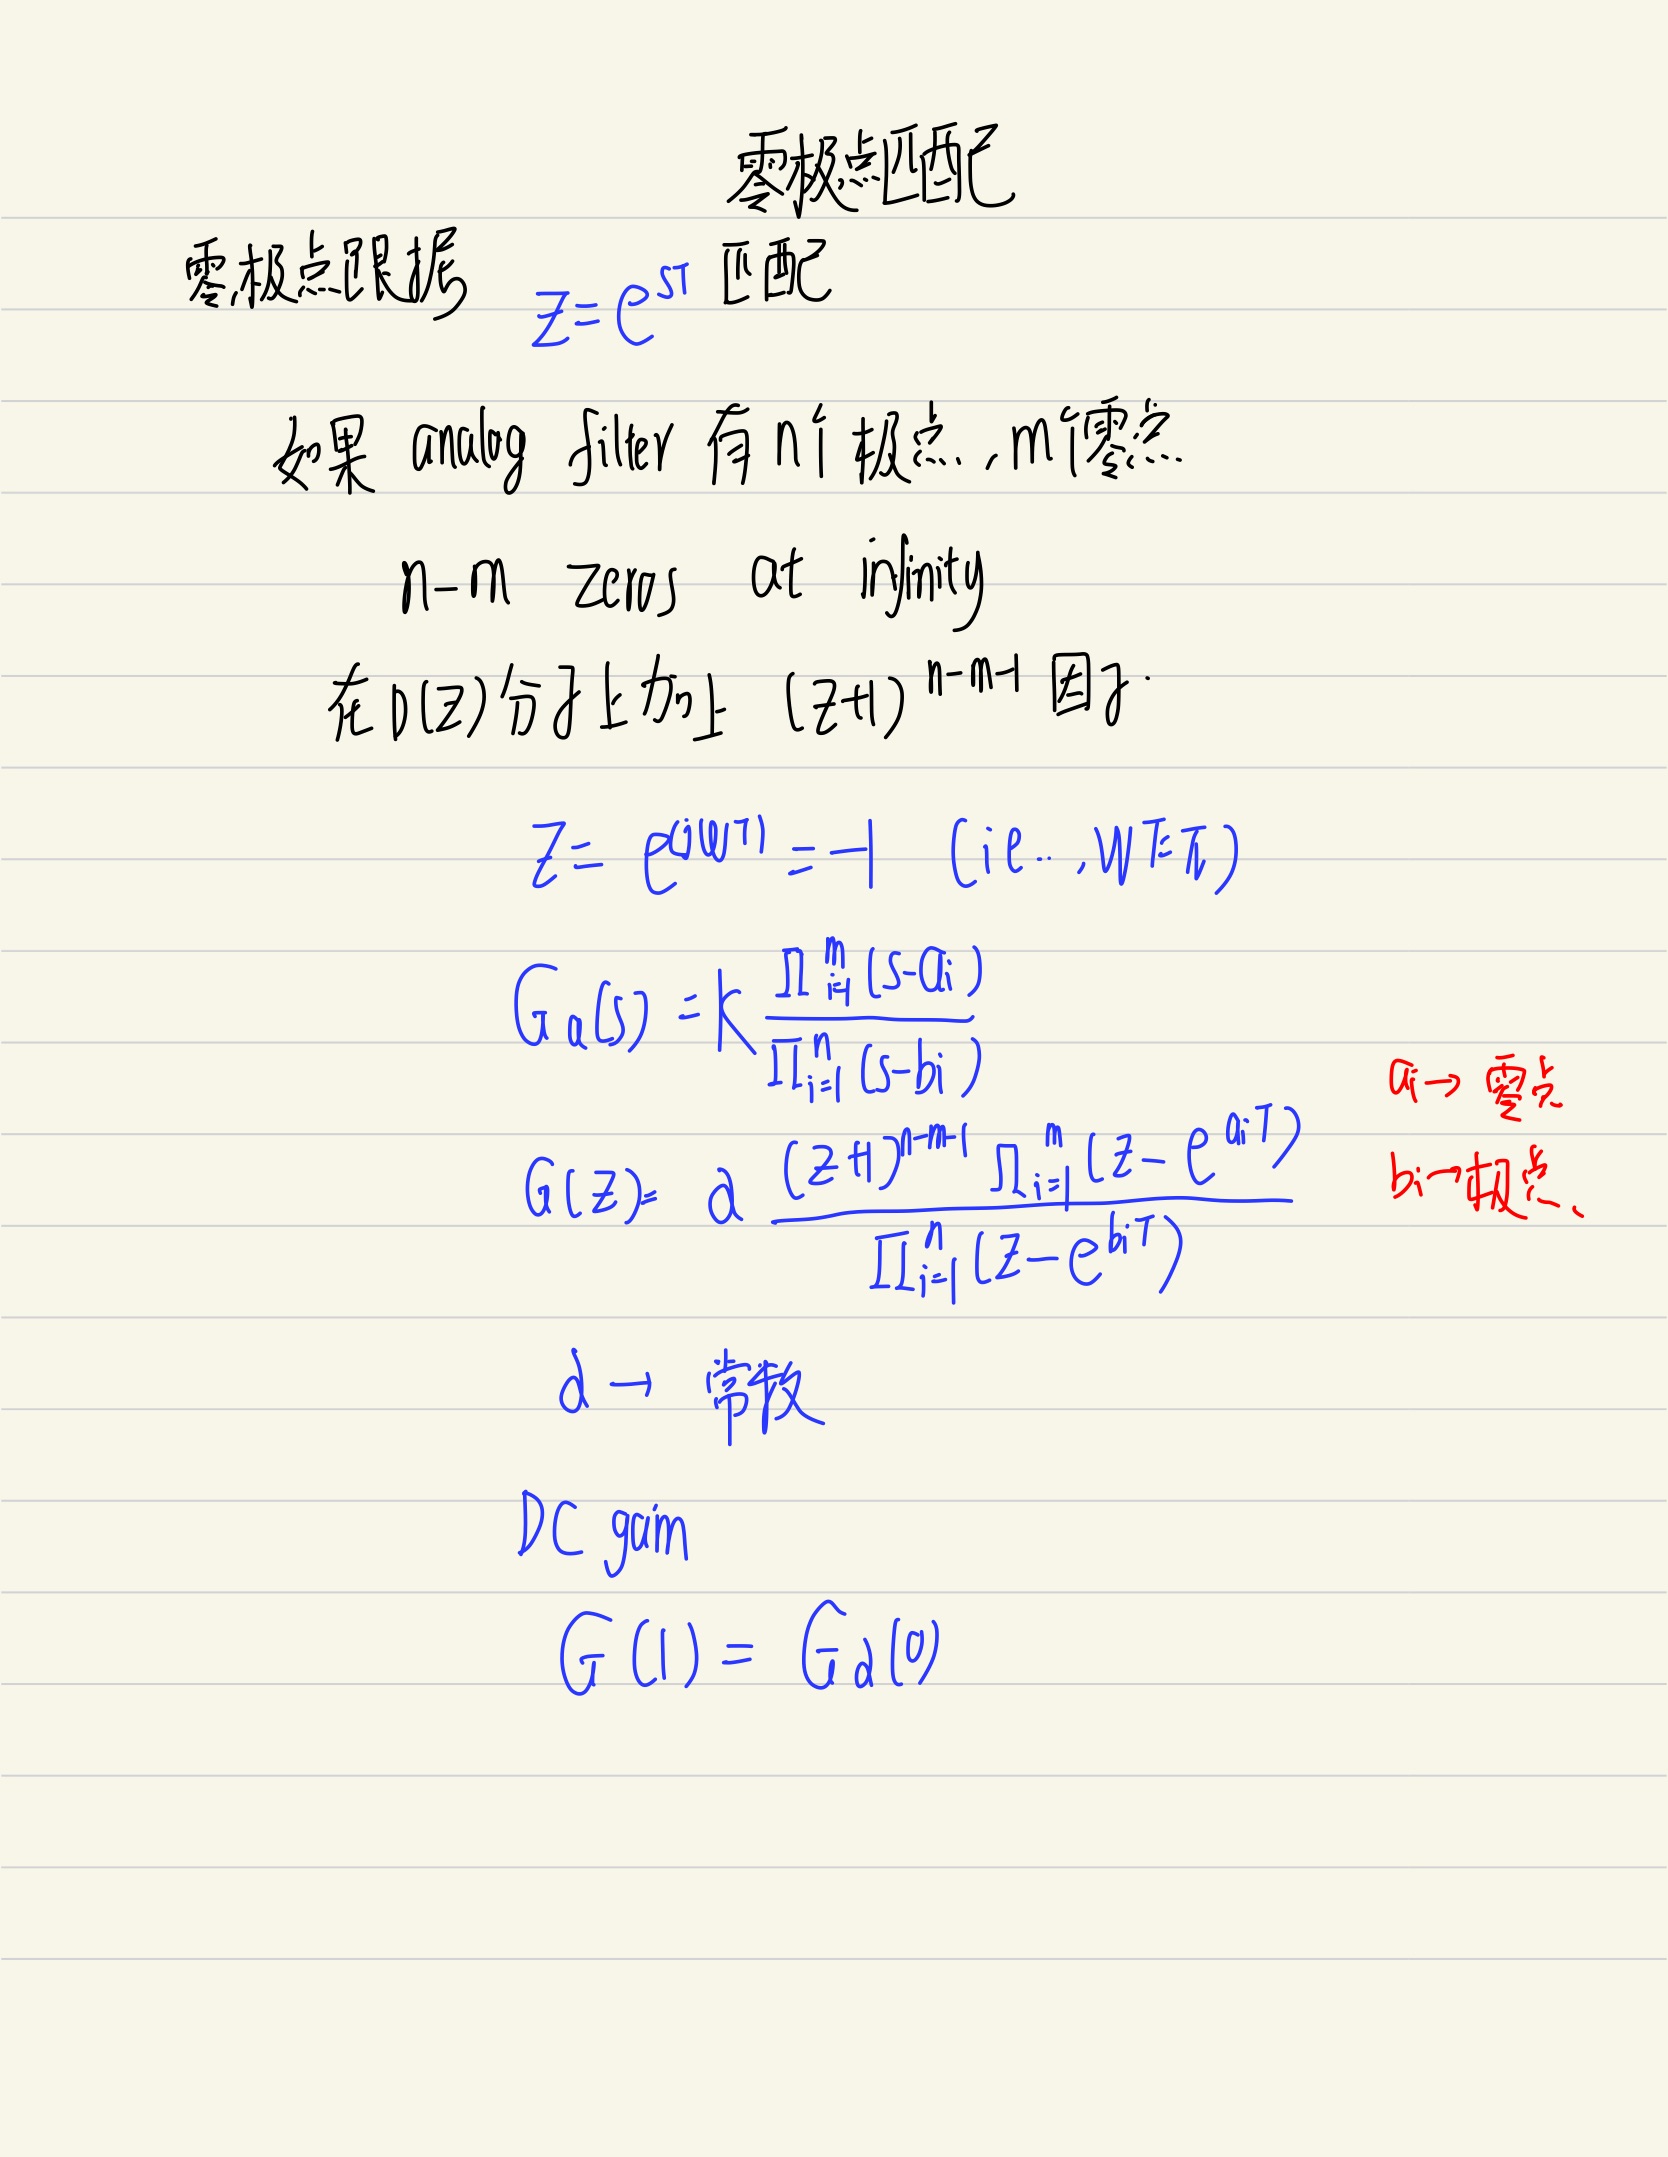 零极点匹配
零极点跟据 z=e^{sT} 匹配
如果 analog filter 有n个极点,m个零点.
n-m zeros at infinity
在D(z)分子上加上 (z+1)^{n-m-1} 因子.
z= e^{(jwT)} =-1 (ie..,wT=π)
G_a(s) =k \frac{∏_{i=1}^{m}(s-a_i)}{∏_{i=1}^{n}(s-b_i)}
a_i→零点
G(z)= d \frac{(z+1)^{n-m-1} ∏_{i=1}^{m}(z-e^{a_iT})}{∏_{i=1}^{n}(z-e^{b_iT})}
b_i→极点、
d → 常数
DC gain
G(1) = G_d(0)